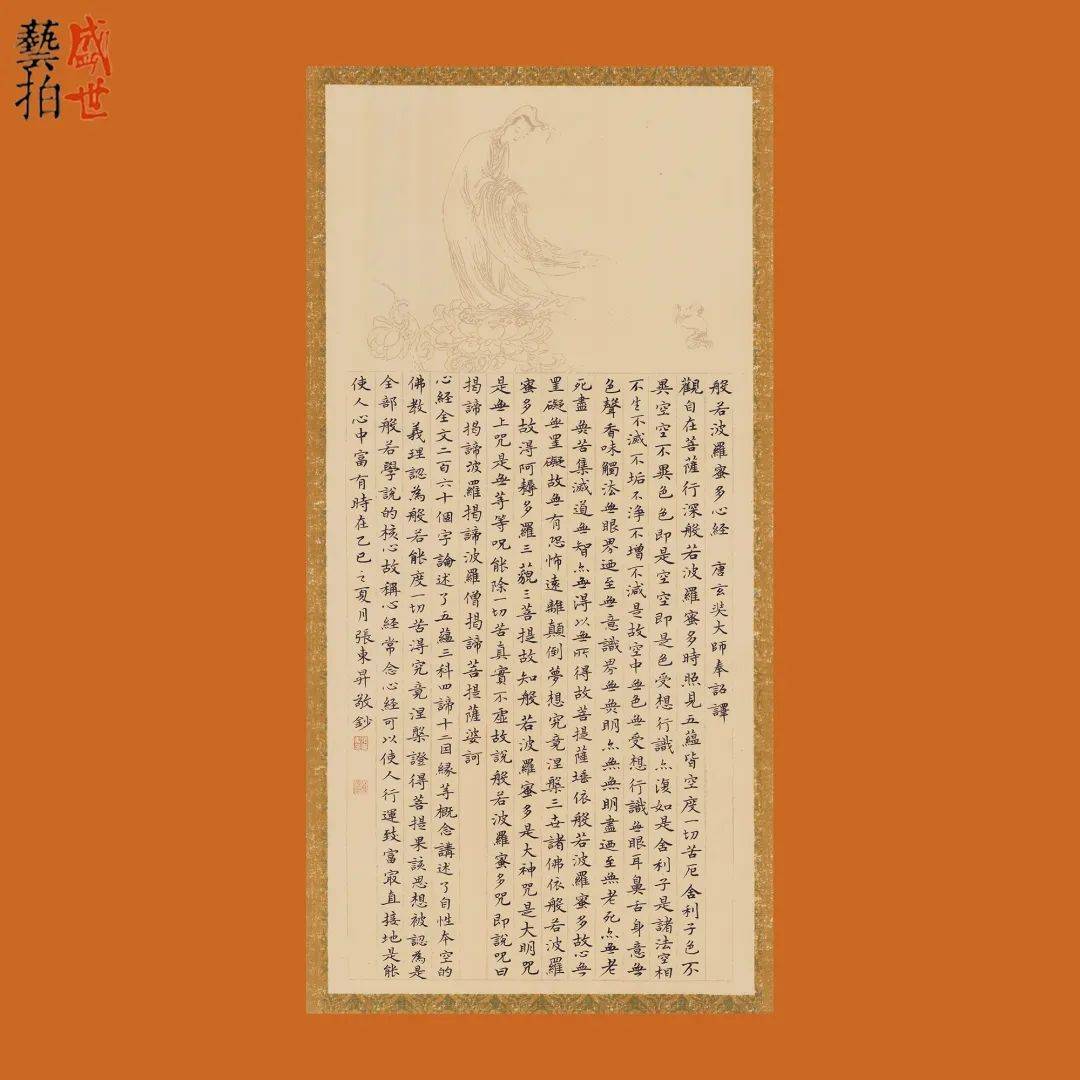 盛世
藝拍
般若波羅蜜多心經 唐玄奘大師奉詔譯
觀自在菩薩行深般若波羅蜜多時照見五蘊皆空度一切苦厄舍利子色不
異空空不異色色即是空空即是色受想行識亦復如是舍利子是諸法空相
不生不滅不垢不淨不增不減是故空中無色無受想行識無眼耳鼻舌身意無
色聲香味觸法無眼界迺至無意識界無無明亦無無明盡迺至無老死亦無老
死盡無苦集滅道無智亦無得以無所得故菩提薩埵依般若波羅蜜多故心無
罣礙無罣礙故無有恐怖遠離顛倒夢想究竟涅槃三世諸佛依般若波羅
蜜多故得阿耨多羅三藐三菩提故知般若波羅蜜多是大神咒是大明咒
是無上咒是無等等呪能除一切苦真實不虛故說般若波羅蜜多咒即說呪曰
揭諦揭諦波羅揭諦波羅僧揭諦菩提薩婆訶
心經全文二百六十個字論述了五蘊三科四諦十二因緣等概念講述了自性本空的
佛教義理認為般若能度一切苦得究竟涅槃證得菩提果該思想被認為是
全部般若學說的核心故稱心經常念心經可以使人行運致富最直接地是能
使人心中富有時在乙巳之夏月張東昇敬鈔